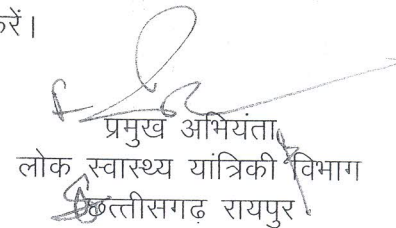 करें।
प्रमुख अभियंता
लोक स्वास्थ्य यांत्रिकी विभाग
छत्तीसगढ़ रायपुर